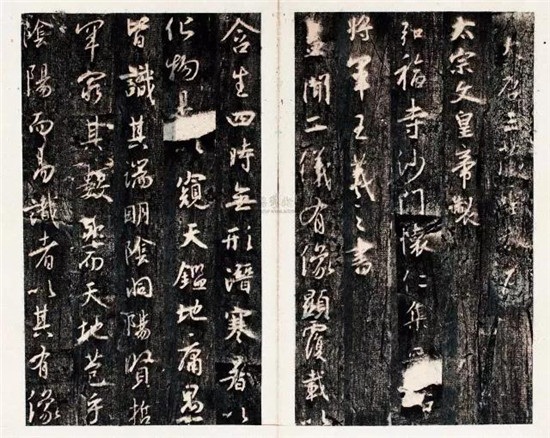 大唐三藏聖教序
太宗文皇帝製
弘福寺沙門懷仁集右
將軍王羲之書
蓋聞二儀有像顯覆載以
含生四時無形潛寒暑以
化物是以窺天鑑地庸愚
皆識其端明陰洞陽賢哲
罕窮其數然而天地苞乎
陰陽而易識者以其有像